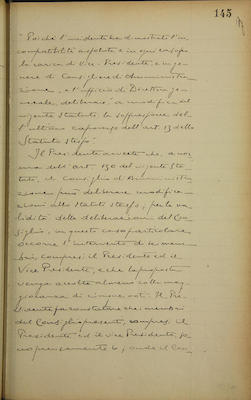 145
"Poichè l'incidente ha dimostrato l'in-
compatibilità assoluta e in ogni caso fra
la carica di Vice-Presidente, e in ge-
nere di Consigliere di Amministra-
zione, e l'ufficio di Direttore ge-
nerale, delibera, a modifica del
vigente Statuto, la soppressione del-
l'ultimo capoverso dell'art. 13 dello
Statuto stesso".
Il Presidente avverte che, a nor-
ma dell'art. 150 del vigente Sta-
tuto, il Consiglio di Amministra-
zione può deliberare modifica-
zioni allo statuto stesso, per la va-
lidità della deliberazione del Con-
siglio, in questo caso particolare,
occorre l'intervento di sei mem-
bri, compresi il Presidente ed il
Vice Presidente, e che la proposta
venga accolta almeno colla mag-
gioranza di cinque voti. Il Pre-
sidente fa constatare che i membri
del Consiglio presenti, compresi il
Presidente ed il Vice Presidente, so-
no precisamente 6, onde il Con-